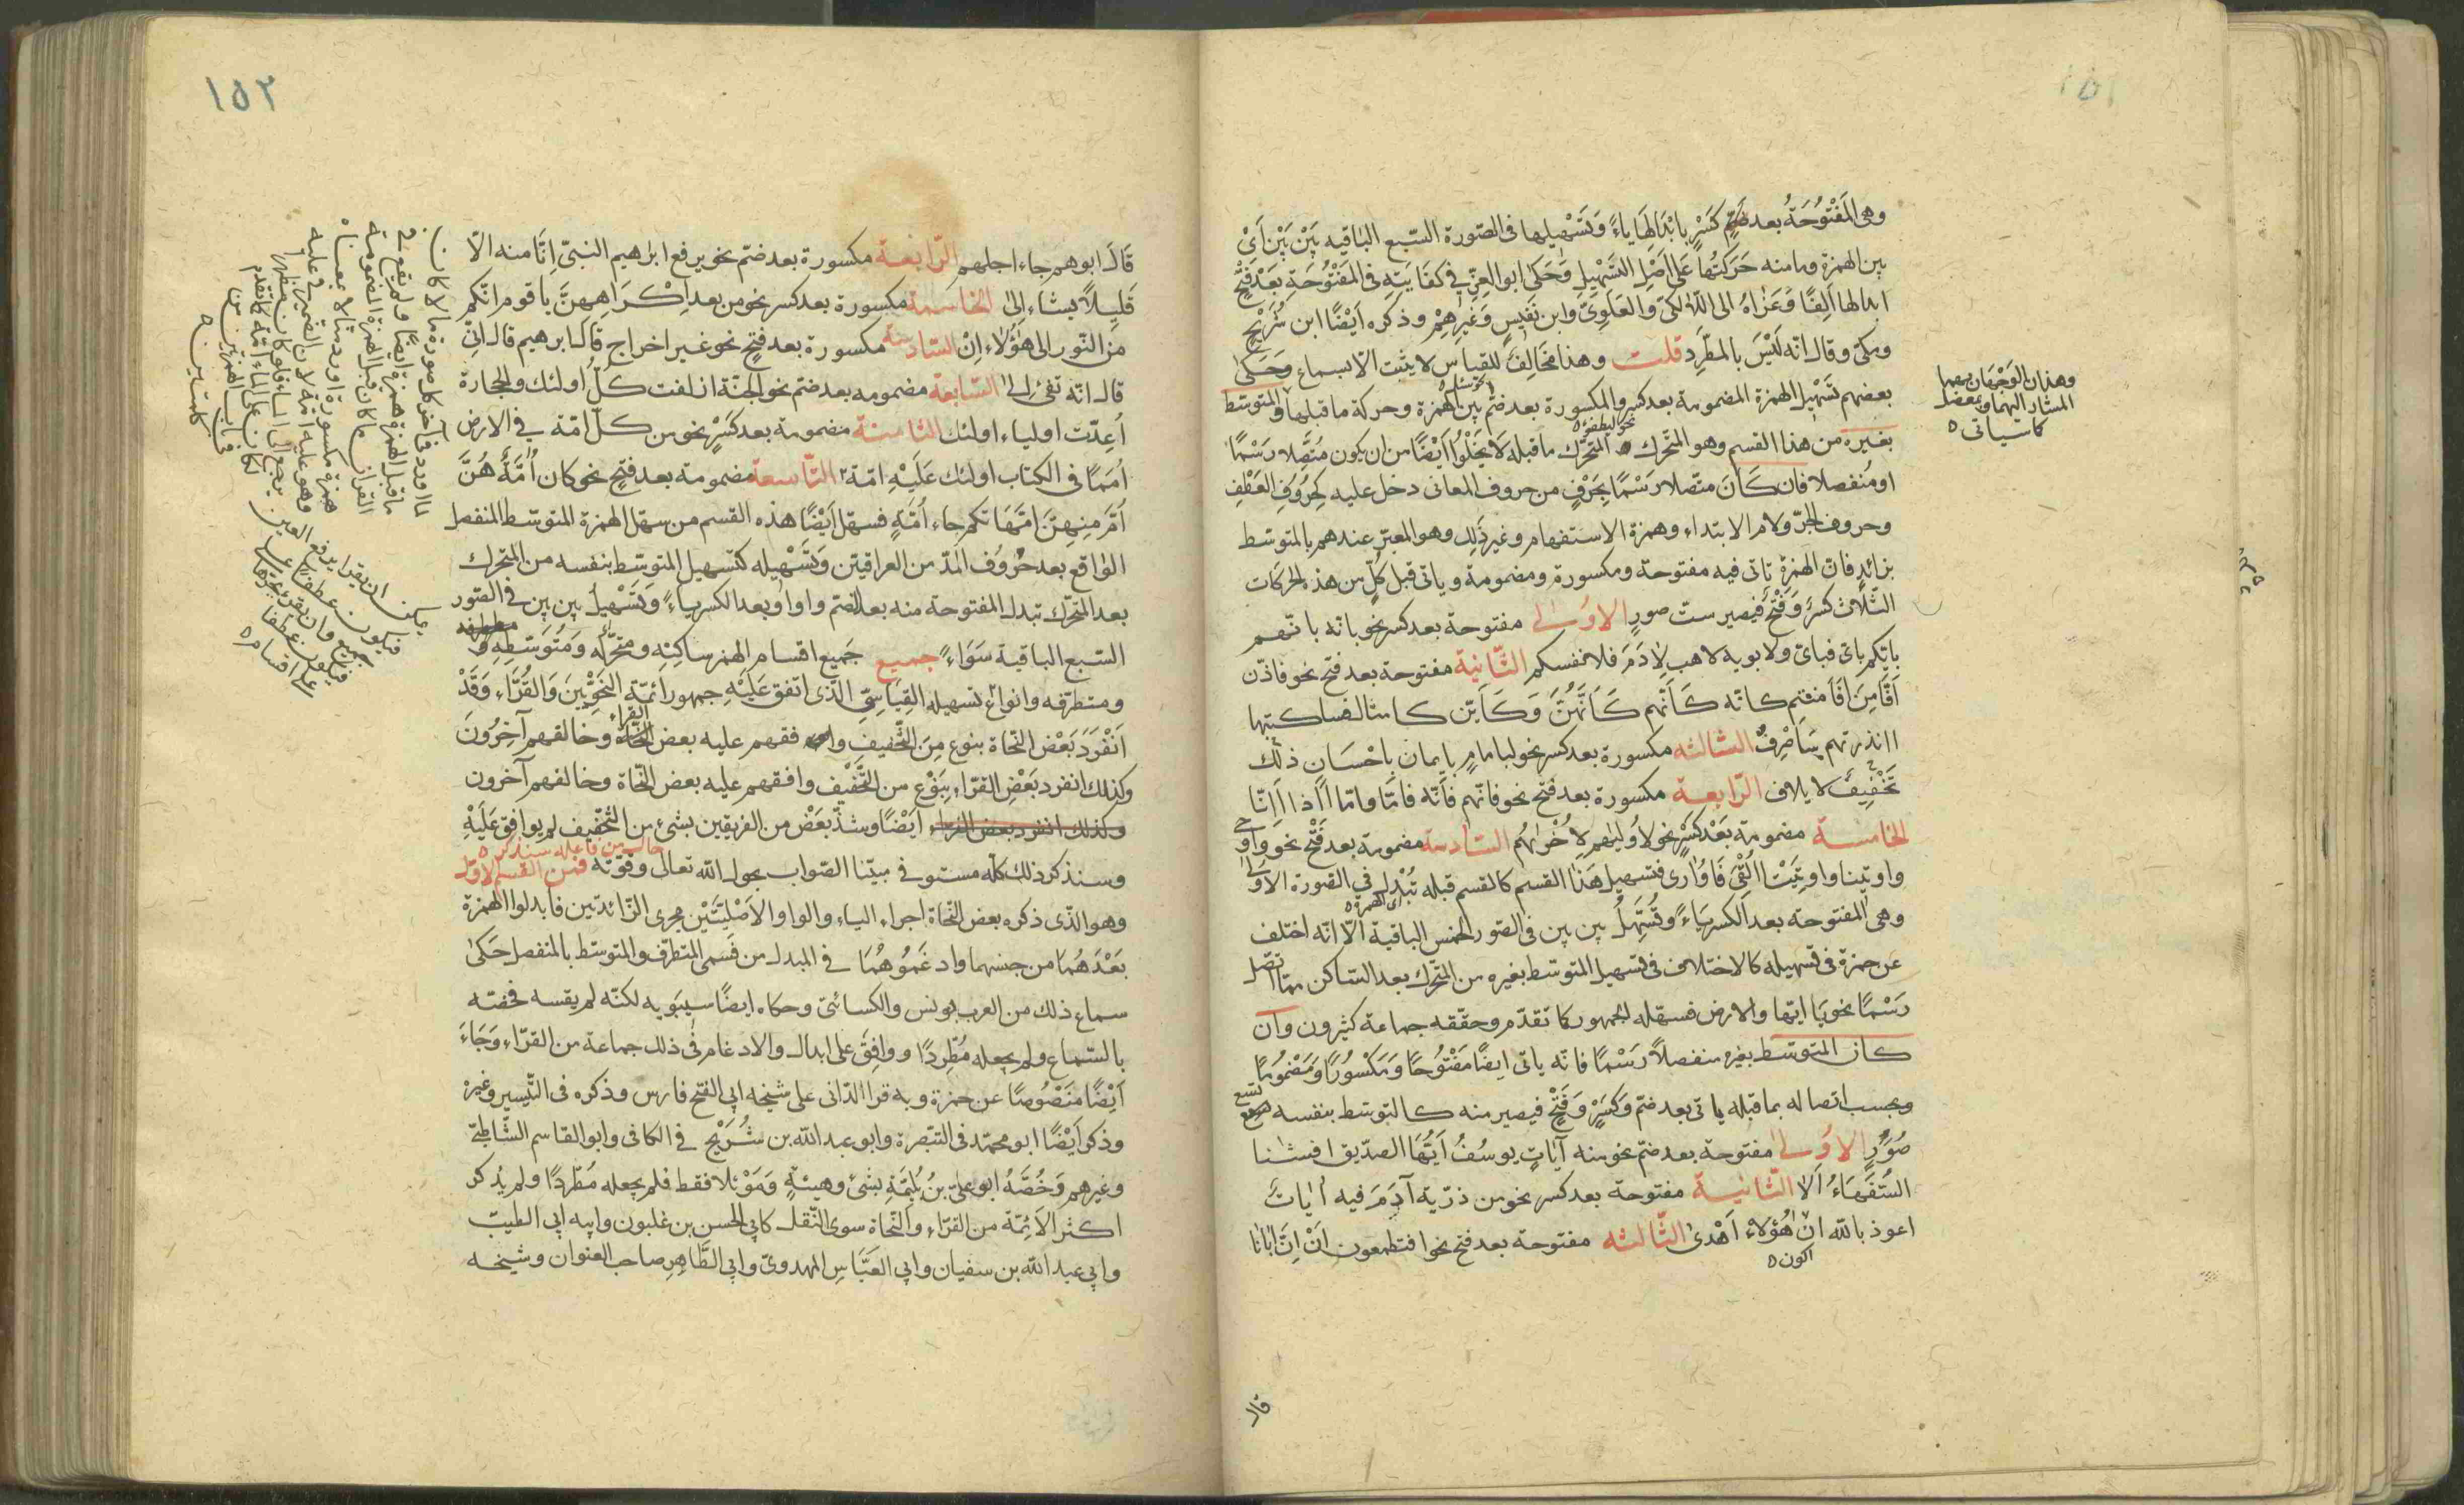 ١٥١
وهى المَفْتُوُحَةُ بعد كَسْرٍ بابْدَالِهَا ياءً وَتَسْهِيلِها فى الصّورة السّبع الباقيه بَيْنَ بَيْنَ اَىْ
بين الهمزة وما منه حَرَكَتُها عَلَى اَصْلِ التّسْهِيلِ وَحَكىٰ ابو العِزّ فى كفَايَتِهِ فى المَفْتُوُحَةِ بَعْدَ فَتْحٍ
ابدالها اَلِفًا وَعَزَاهُ الى المالكىّ والعَلَوِىّ وابن نَفِيسٍ وَغَيْرِهِمْ وذكره اَيْضًا ابن شُرَيْحٍ
ومكىّ وقال انّه لَيْسَ بالمطَّرِدِ قلت وهذا مُخالِفٌ للقياس لا يثبت الّا بسماع وَحَكىٰ
بعضهم تسْهِيل الهمزة المضمومة بعد كسر والمكسورة بعد ضمّ بين الهمزة وحركة ما قبلها والمتوسّط
بغيره من هذا القسم وهو المتحّرك المتحّرك ماقبله لا يَخْلُوا اَيْضًا من ان يكون مُتّصِلا رَسْمًا
او مُنفصلا فان كَانَ متّصلا رَسْمًا بِحَرْفٍ من حروف المعانى دخل عليه كحُروُفِ العَطْفِ
وحروف الجرّ ولام الابتداء وهمزة الاستفهام وغير ذلك وهو المعبّر عندهم بالمتوسّط
بزائدٍ فانّ الهمزة تاتى فيه مفتوحة ومكسورة ومضمومة وياتى قبل كلّ من هذه الحركات
الثّلاث كسرٌ وَفَتْحٌ فيصير ست صورٍ الاُولىٰ مفتوحة بعد كسر نحو بانّه بانّهم
بايّكم باىّ فباىّ ولابويه لاهب لآدَمَ فلانفسكم الثّانية مفتوحة بعد فتح نحو فاذّن
اَفَاَمِنَ اَفَاَمنتم كانّه كَاَنّهم كَاَنّهُنّ وَكَاَيّن كامثال فساكتبها
اانذرتهم سَاَصْرِفُ الثالثه مكسورة بعد كسر نحو لبامامٍ بايمان باِحْسَانٍ
لايلاف الرّابعة مكسورة بعد فتح نحو فانّهم فَاَنّه فامّا وامّا اَاذا اَانّا
الخامسة مضمومة بَعْد كَسْرٍ نحو لاُوليٰهم لِاُخْرٰهُم السّادسة مضمومة بعد فَتْح نحو واُوحى
واُوتينا واُوتِيَتْ اَاُلْقِىَ فَاُوَارى فتسهيل هَذا القسم كالقسم قبله تُبْدل فى الصّورة الاولىٰ
وهى المفتوحة بعد الكسر يَاءً وَتُسَهِّلُ بين بين فى الصّور الخمس الباقية الّا انّه اختلف
عن حمزة فى تسهيله كالاختلاف فى تسهيل المتوسّط بغيره من المتحّرك بعد السّاكن ممّا اتّصل
رَسْمًا نحو يَا ايّها والارض فسهّله الجمهور كما تقدّم وحقّقه جماعة كثيرون وان
كان المتوسّط بغيره منفصلاً رَسْمًا فانّه ياتى ايضًا مَفْتُوحًا وَمَكْسُورًا وَمَضْمُومًا
وبحسب اتصاله بما قبله ياتى بعد ضمّ وَكَسْرٍ وَفَتْحٍ فيصير منه كالمتوسّط بنفسه تسع
صُوَرٍ الاُولىٰ مفتوحة بعد ضمّ نحو منه آياتٍ يوسُفُ اَيّهَا الصدّيق افتنا
السُّفَهَاءُ اَلا الثّانية مفتوحة بعد كسر نحو من ذرّية آدَمَ فيه آياتٌ
اعوذ بالله ان هٰؤُلاء اَهْدىٰ الثّالثه مفتوحة بعد فتح نحو افتطمعون اَنْ اِنّ اَبَانا
اكون
قال
وهذان الوَجْهَان هما
المشار اليهما بمعضل
كما سياتى
١٥٢
قَالَ ابوهم جاء اجلهم الرّابعة مكسورة بعد ضمّ نحو يرفع ابراهيم النبىّ اِنّا منه الّا
قَلِيلاً يشاء اِلىٰ الخامسة مكسورة بعد كسر نحو من بعد اِكْرَاهِهِنّ يا قوم انّكم
من النّور الى هٰؤُلاءِ اِنْ السّادسة مكسورة بعد فتحٍ نحو غير اخراج قال ابرهيم قال انّى
قال انّه تفىءَ اِلىٰ السّابعة مضمومه بعد ضمّ نحو الجنّة ازلفت كلُّ اُولئك والحجارة
اُعِدّت اولياء اولئك الثّامنة مضمومة بعد كسْرٍ نحو من كلّ امّة فى الارض
اُمَمًا فى الكتاب اولئك عَلَيْهِ امّة التّاسعة مضمومة بعد فتحٍ نحو كان اُمَّةً هُنّ
اُمّ مِنهِنّ امّهَاتكم جاء اُمّةٍ فسهّل اَيْضًا هذه القسم من سهّل الهمزة المتوسّط المنفصل
الواقع بعد حُرُوفِ المَدّ من العراقيّين وَتَسْهيله كتسهيل المتوسّط بنفسه من المتحّرك
بعد المتحّرك تبدل المفتوحة منه بعد الضّم واواً وبعد الكسر ياءً وَتَسْهيل بين بين فى الصّور
السّبع الباقية سَوَاءً جميع جَميع اقسام الهمز ساكِنِهِ ومتحّركه وَمُتَوَسّطِهِ
ومتطرّفه وانواع تسهيله القِيَاسِىّ الّذى اتفق عَلَيْهِ جمهور ائمّة النّحْوِيّينَ وَالقُرّاءِ وَقَدْ
اَنفرَدَ بَعْض النّحاة بنوع مِنَ التَّخفيفِ وافقهم عليه بعض القراء وخالفهم آخِرُونَ
وكذلك انفرد بَعْض القرّاءِ بِنَوْعٍ من التّخْفِيْف وافقهم عليه بعض النّحاة وخالفهم آخرون
وكذلك انفرد بعض القراء اَيْضًا وشذّ بَعْض من الفريقين بشىء من التّخفيف لم يوافق عَلَيْهِ
حال من فاعل سنذكر
وسنذكر ذلك كلّه مستوفى مبيّنا الصّواب بحول الله تعالى وقوّته فمن القسم الاوّل
وهو الّذى ذكره بعض النّحاة اجراء الياء والواو الاَصْلِيّتَيْن مجرى الزّائدتين فابدلوا الهمزة
بَعْدَهُمَا من جنسهما وادغَمُوهُمَا فى المبدل من قسمى المتطرّف والمتوسّط بالمنفصل حَكىٰ
سماع ذلك من العرب يونس والكسائىّ وحكاه ايضًا سيبَويه لكنّه لم يقسه فخصّه
بالسّماع ولم يجعله مُطّردًا ووافق على الابدال والادغام فى ذلك جماعة من القرّاءِ وَجَاءَ
اَيْضًا مَنْصُوصًا عن حمزة وبه قرا الدّانى على شيخه ابى الفتح فارس وذكره فى التّيسير وغيره
وذكر اَيْضًا ابو محمّد فى التّبصرة وابو عبد الله بن شُرَيْحٍ فى الكافى وابو القاسم الشّاطبىّ
وغيرهم وَخَصّهُ ابو علىّ بنُ بَلِيمَة بشىءٍ وهيئةٍ وَمَوْئلا فقط فلم يجعله مطّردًا ولم يُذكر
اكثر الاَئمّة من القرّاء والنّحاة سوى النّقل كابى الحسن بن غلبون وابيه ابى الطيّب
وابى عبد الله بن سفيان وابى العَبّاسِ المهدوىّ وابى الطّاهِرِ صاحب العنوان وشيخه
يمكن ان يقرا برفع العين
فيكون عطفا على
جميع وان يقرء بجرّها
فيكون عطفا
على اقسام